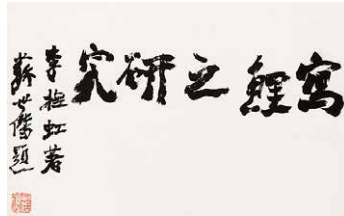 寫鯉之研究
李撫虹著
蘇世傑題